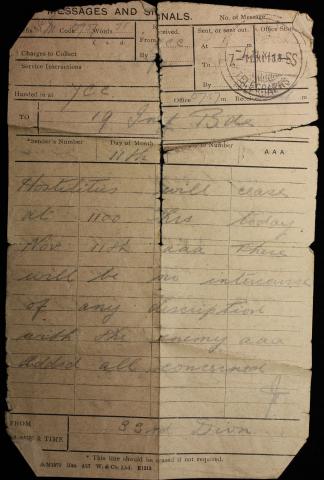 MESSAGES AND SIGNALS. No. of Message
Words Received. Sent, or sent out. Office Stamp
Charges to Collect From At
By YCC To
Service Instructions By
TELEGRAPHS
Handed in at YCC Office m. Received m.
TO 19 Inf Bde
*Sender's Number Day of Month In reply to Number AAA
11th
Hostilities will cease
at 1100 hrs today
Nov 11th aaa there
will be no intercourse
of any discription
with the enemy aaa
Added all concerned
FROM 33rd Divn
PLACE & TIME
* This line should be erased if not required.
W. & Co. Ltd.